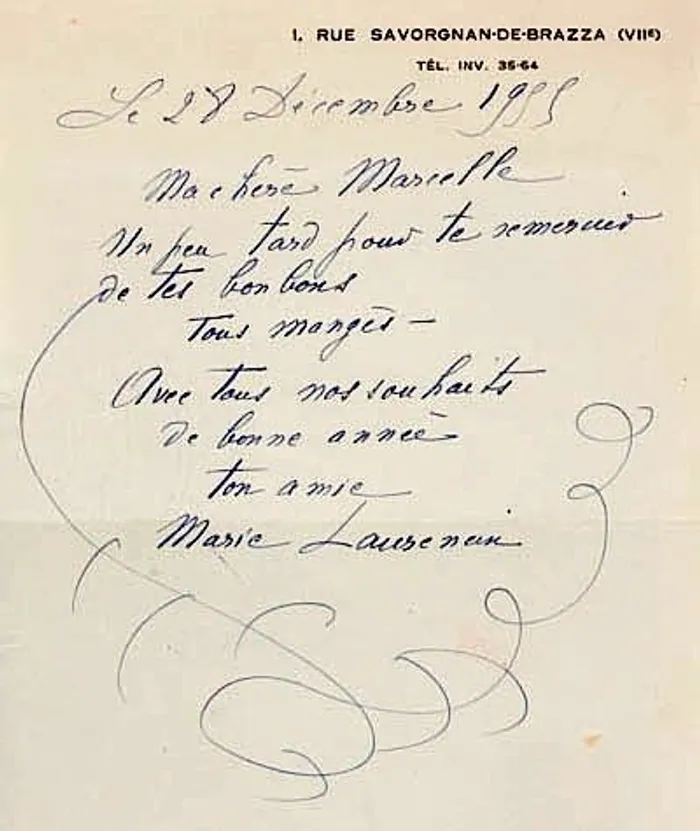 1, RUE SAVORGNAN-DE-BRAZZA (VIIe)
TÉL. INV. 35-64
Le 28 Décembre 1955
Ma chère Marcelle
Un peu tard pour te remercier
de tes bonbons
Tous mangés –
Avec tous nos souhaits
de bonne année
ton amie
Marie Laurencin